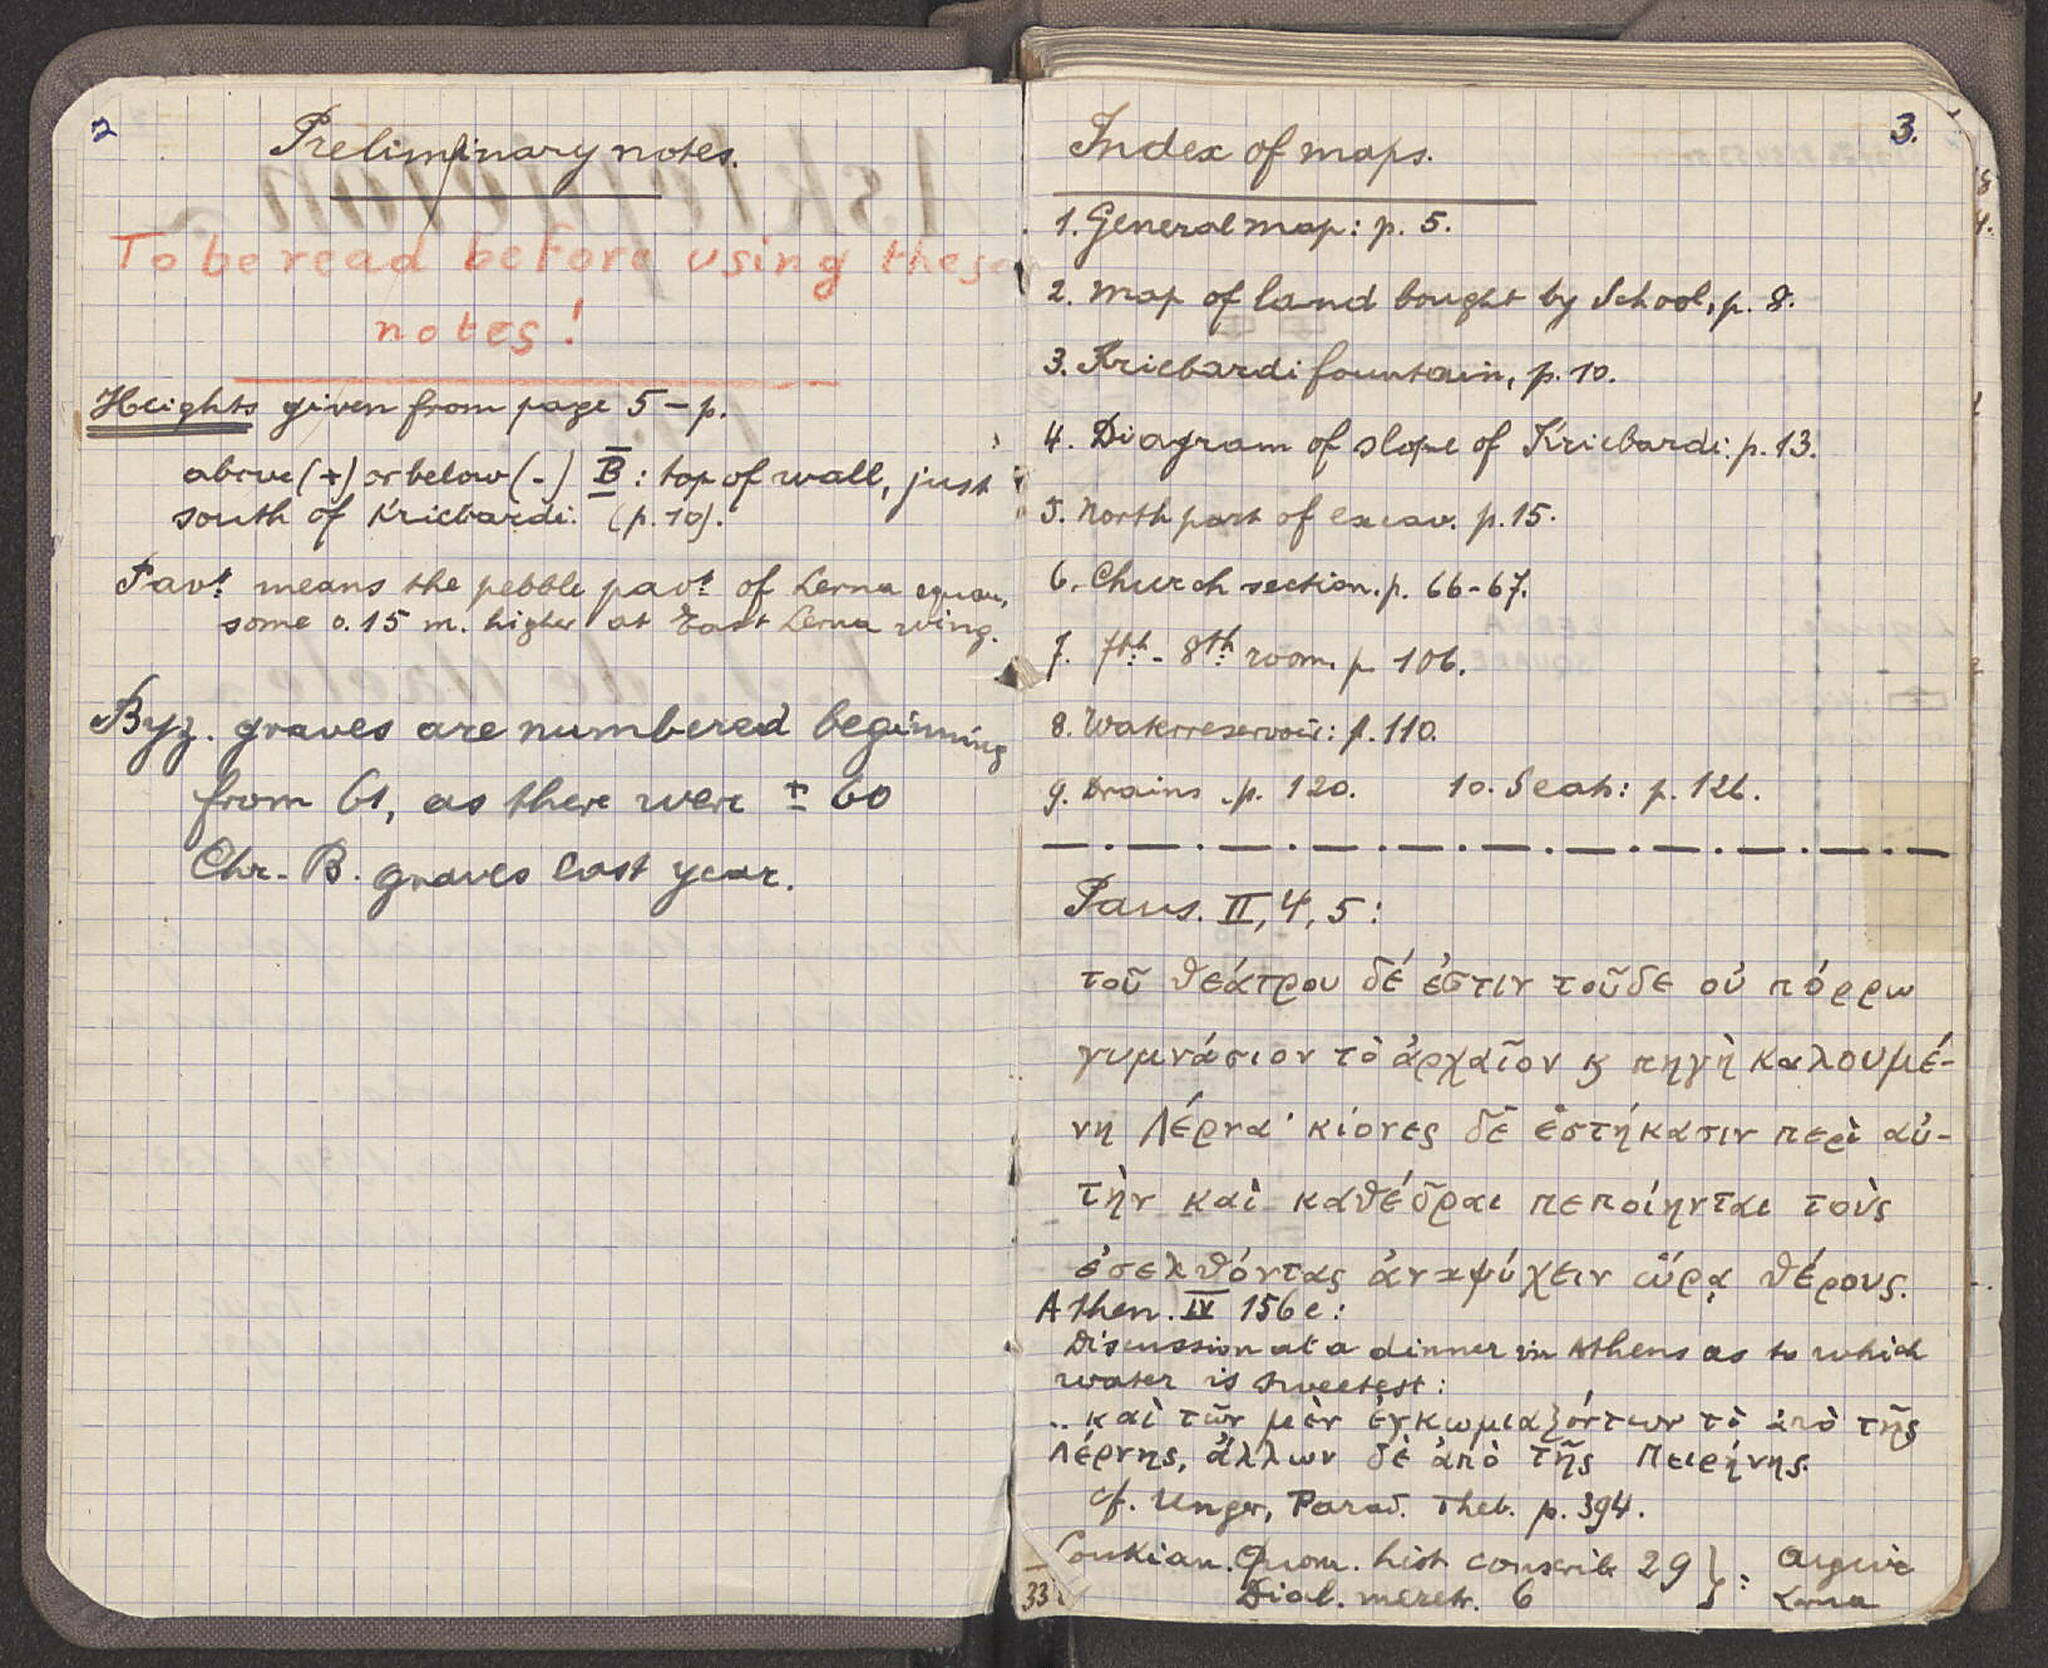 2
Preliminary notes.
To be read before using these
notes!
Heights given from page 5 – p.
above (+) or below (-) B : top of wall, just
south of Kriebardi. (p. 10).
Pavt. means the pebble pavt. of Lerna square,
some 0.15 m. higher at East Lerna wing.
Byz. graves are numbered beginning
from 61, as there were ± 60
Chr. B. graves last year.
3.
Index of maps.
1. General map: p. 5.
2. Map of land bought by School, p. 8.
3. Kriebardi fountain, p. 10.
4. Diagram of slope of Kriebardi: p. 13.
5. North part of excav. p. 15.
6. Church section. p. 66-67.
7. 7th - 8th room. p. 106.
8. Waterreservoir: p. 110.
9. Drains . p. 120. 10. Seats: p. 126.
Paus. II, 4, 5:
τοῦ θεάτρου δέ ἐστιν τοῦδε οὐ πόρρω
γυμνάσιον τὸ ἀρχαῖον ϗ πηγὴ καλουμέ-
νη Λέρνα· κίονες δὲ ἑστήκασιν περὶ αὐ-
τὴν καὶ καθέδραι πεποίηνται τοὺς
ἐσελθόντας ἀναψύχειν ὥρᾳ θέρους.
Athen. IV 156 e:
Discussion at a dinner in Athens as to which
water is sweetest:
.. καὶ τῶν μὲν ἐγκωμιαζόντων τὸ ἀπὸ τῆς
Λέρνης, ἄλλων δὲ ἀπὸ τῆς Πειρήνης.
cf. Unger, Parad. Theb. p. 394.
Loukian. Quom. hist conscrib 29 } : Argive
33 Dial. meretr. 6 Lerna